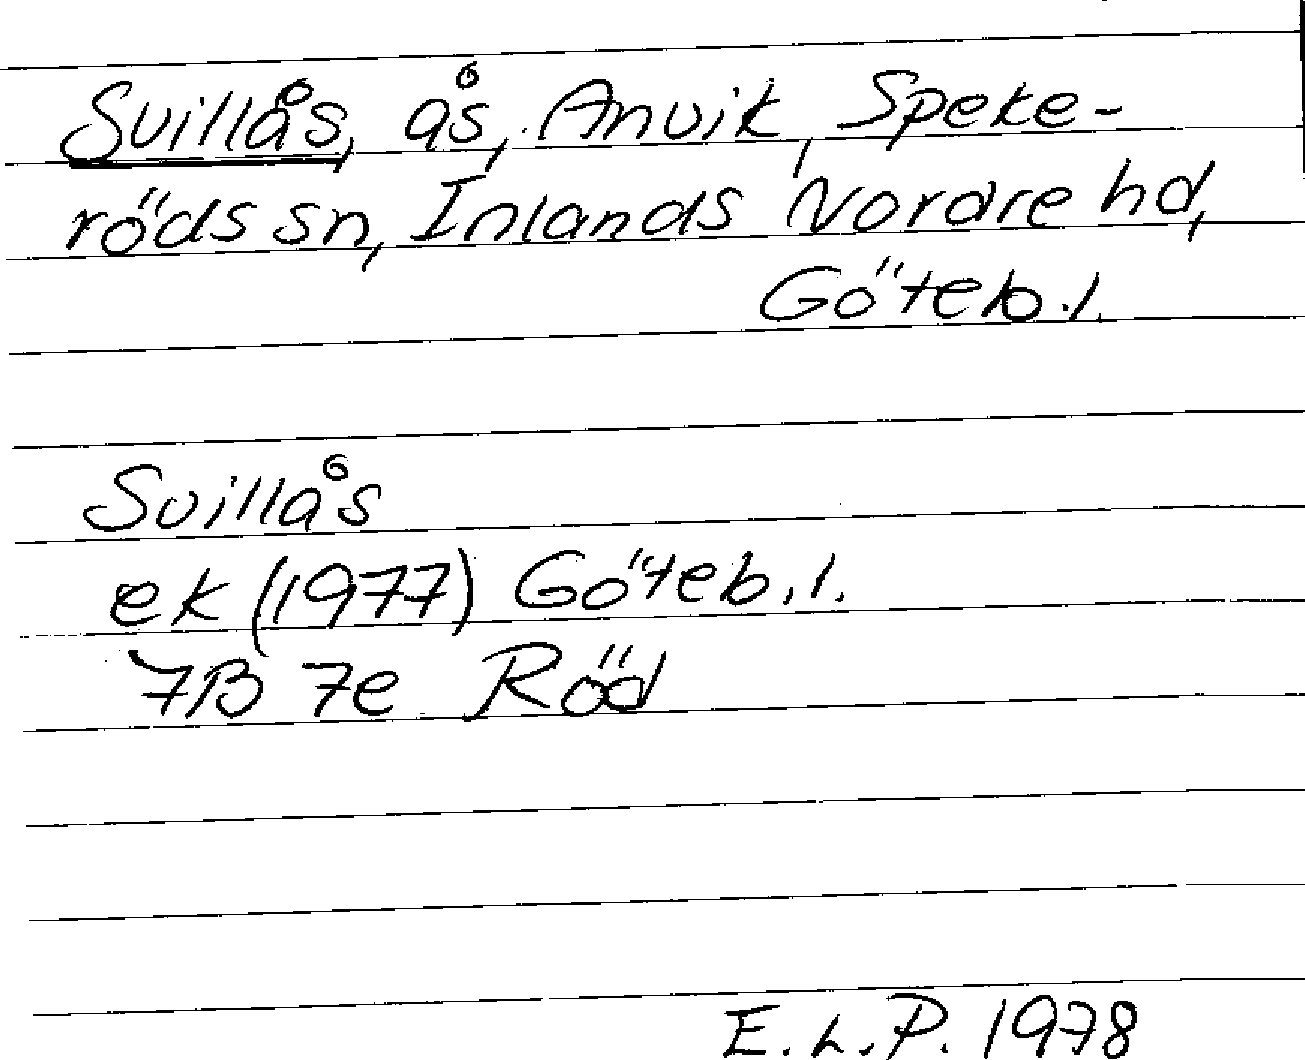 Svillås, ås, Anvik, Speke-
röds sn, Inlands Nordre hd,
Göteb.l.
Svillås
ek (1977) Göteb.l.
7B 7e Röd
E.L.P. 1978